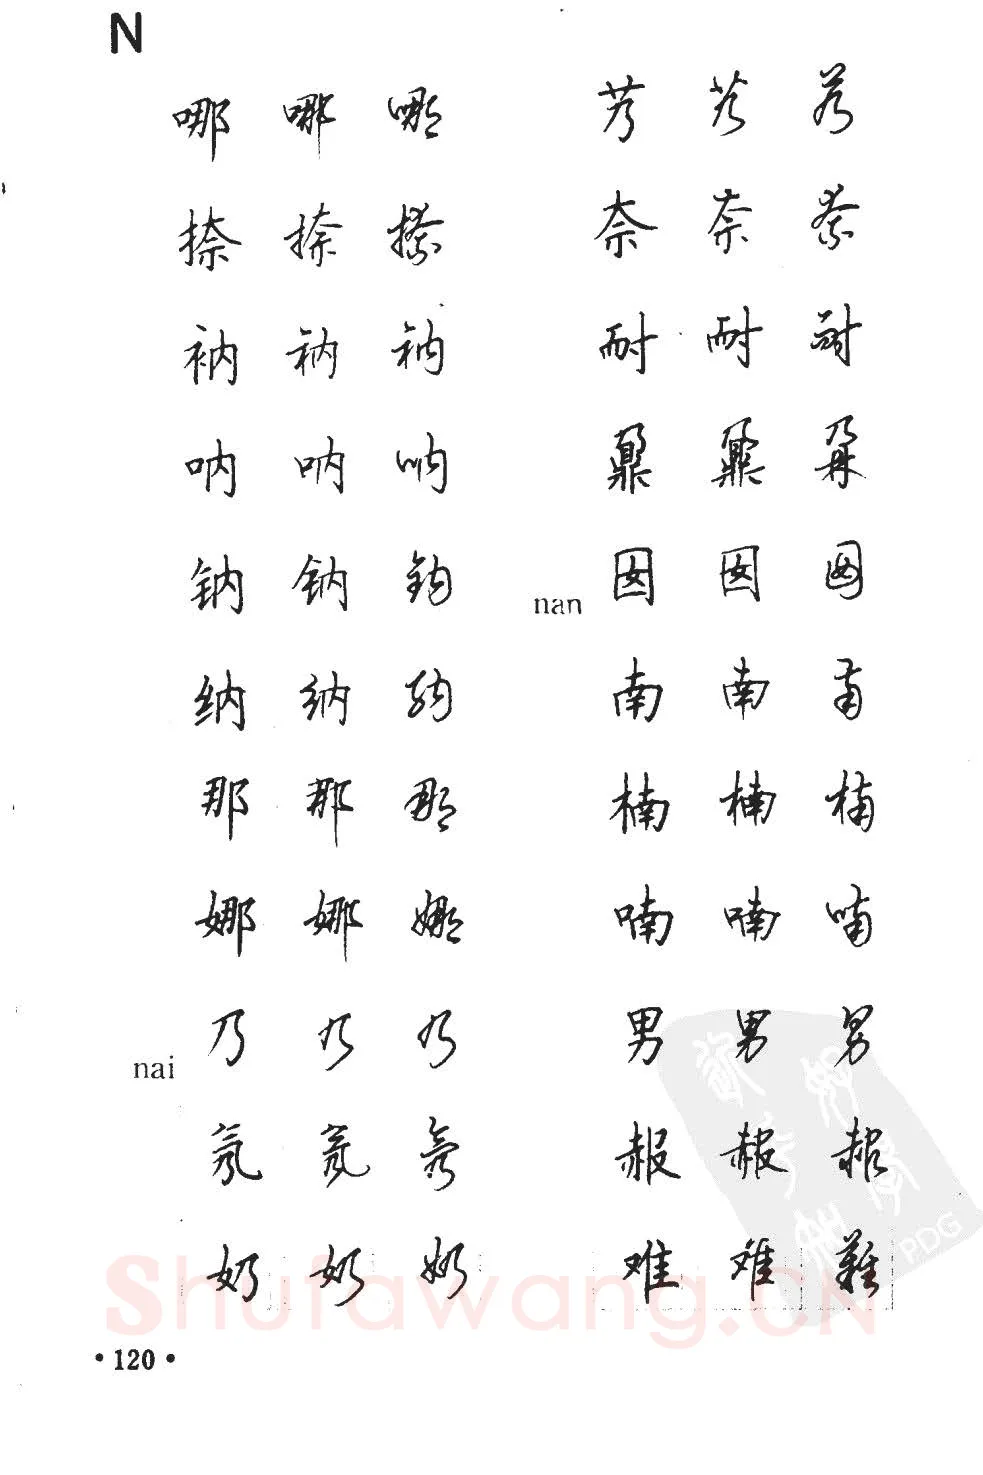 N
哪 哪 哪
捺 捺 捺
衲 衲 衲
呐 呐 呐
钠 钠 钠
纳 纳 纳
那 那 那
娜 娜 娜
nai 乃 乃 乃
氖 氖 氖
奶 奶 奶
艿 艿 艿
奈 奈 奈
耐 耐 耐
鼐 鼐 鼐
nan 囡 囡 囡
南 南 南
楠 楠 楠
喃 喃 喃
男 男 男
赧 赧 赧
难 难 難
Shufawang.CN
PDG
·120·